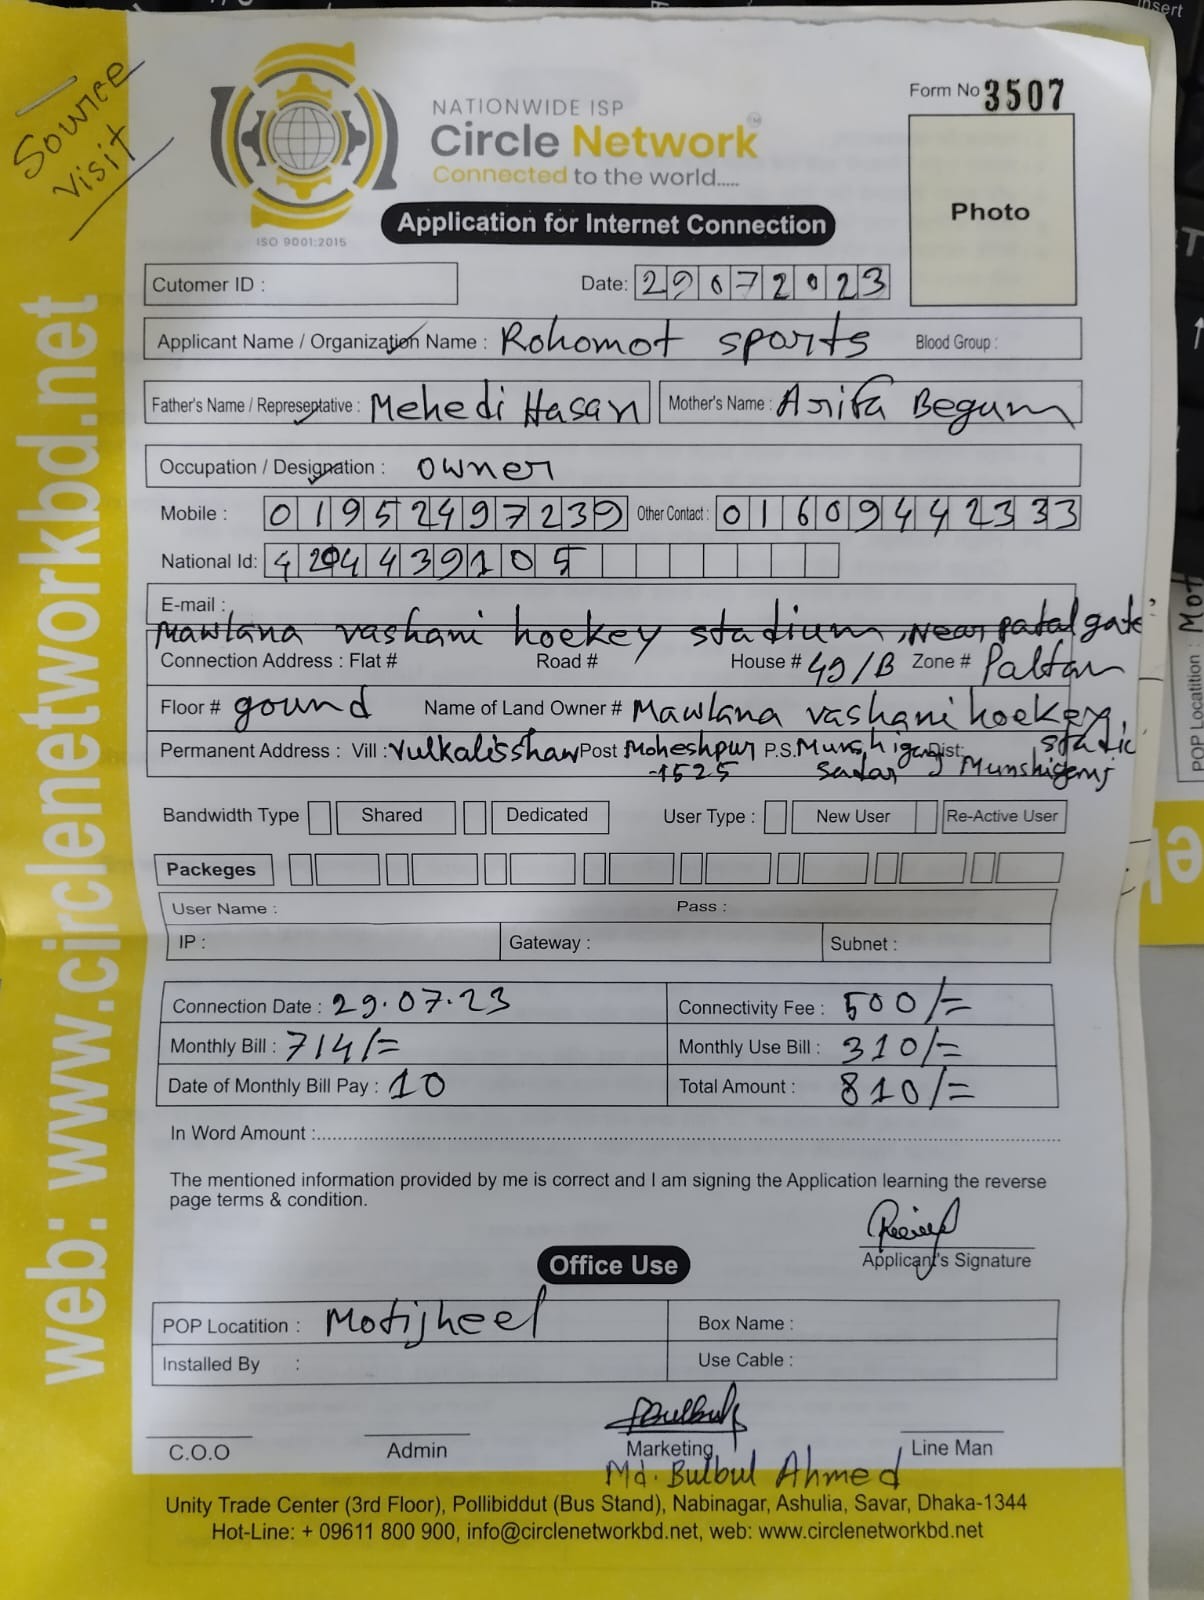 Source
visit
NATIONWIDE ISP
Circle Network
Connected to the world.....
ISO 9001:2015
Form No 3507
Photo
Application for Internet Connection
Cutomer ID :
Date: 29072023
Applicant Name / Organization Name : Rohomot sports Blood Group :
Father's Name / Representative : Mehedi Hasan Mother's Name : Arifa Begum
Occupation / Designation : owner
Mobile : 01952497239 Other Contact : 01609442333
National Id: 4204439105
E-mail :
Mawlana vashani hockey stadium, Near patal gate
Connection Address : Flat # Road # House # 49/B Zone # Paltan
Floor # gound Name of Land Owner # Mawlana vashani hockey
Permanent Address : Vill : Vulkalisshaw Post Moheshpur P.S. Munshiganj Dist: stadic
-1525 Sadar Munshiganj
Bandwidth Type Shared Dedicated User Type : New User Re-Active User
Packeges
User Name : Pass :
IP : Gateway : Subnet :
Connection Date : 29.07.23 Connectivity Fee : 500/=
Monthly Bill : 714/= Monthly Use Bill : 310/=
Date of Monthly Bill Pay : 10 Total Amount : 810/=
In Word Amount :
The mentioned information provided by me is correct and I am signing the Application learning the reverse
page terms & condition.
Applicant's Signature
Office Use
POP Locatition : Motijheel Box Name :
Installed By : Use Cable :
C.O.O Admin Marketing Line Man
Md. Bulbul Ahmed
Unity Trade Center (3rd Floor), Pollibiddut (Bus Stand), Nabinagar, Ashulia, Savar, Dhaka-1344
Hot-Line: + 09611 800 900, info@circlenetworkbd.net, web: www.circlenetworkbd.net
web: www.circlenetworkbd.net
POP Locatition : Mot
Insert